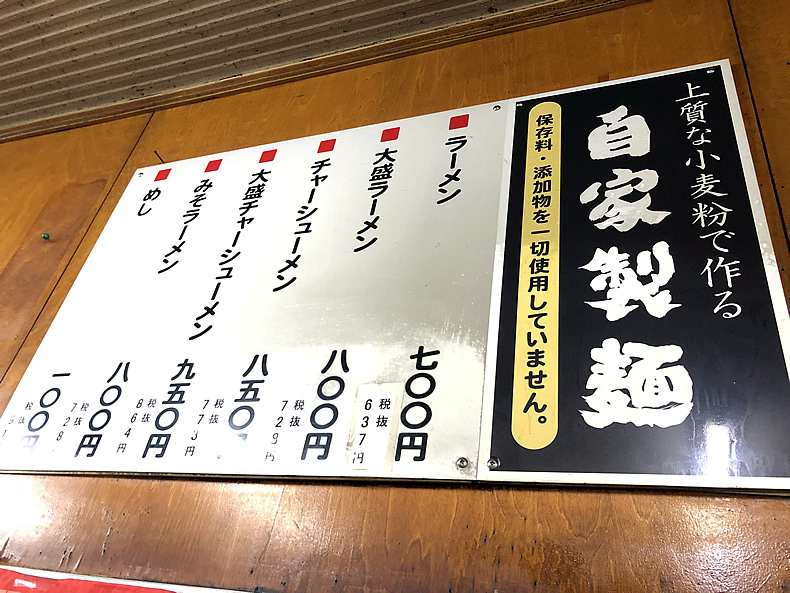 上質な小麦粉で作る
自家製麺
保存料・添加物を一切使用していません。
ラーメン
七〇〇円
税抜
637円
大盛ラーメン
八〇〇円
税抜
728円
チャーシューメン
八五〇円
税抜
773円
大盛チャーシューメン
九五〇円
税抜
864円
みそラーメン
八〇〇円
税抜
728
めし
一〇〇円
税抜